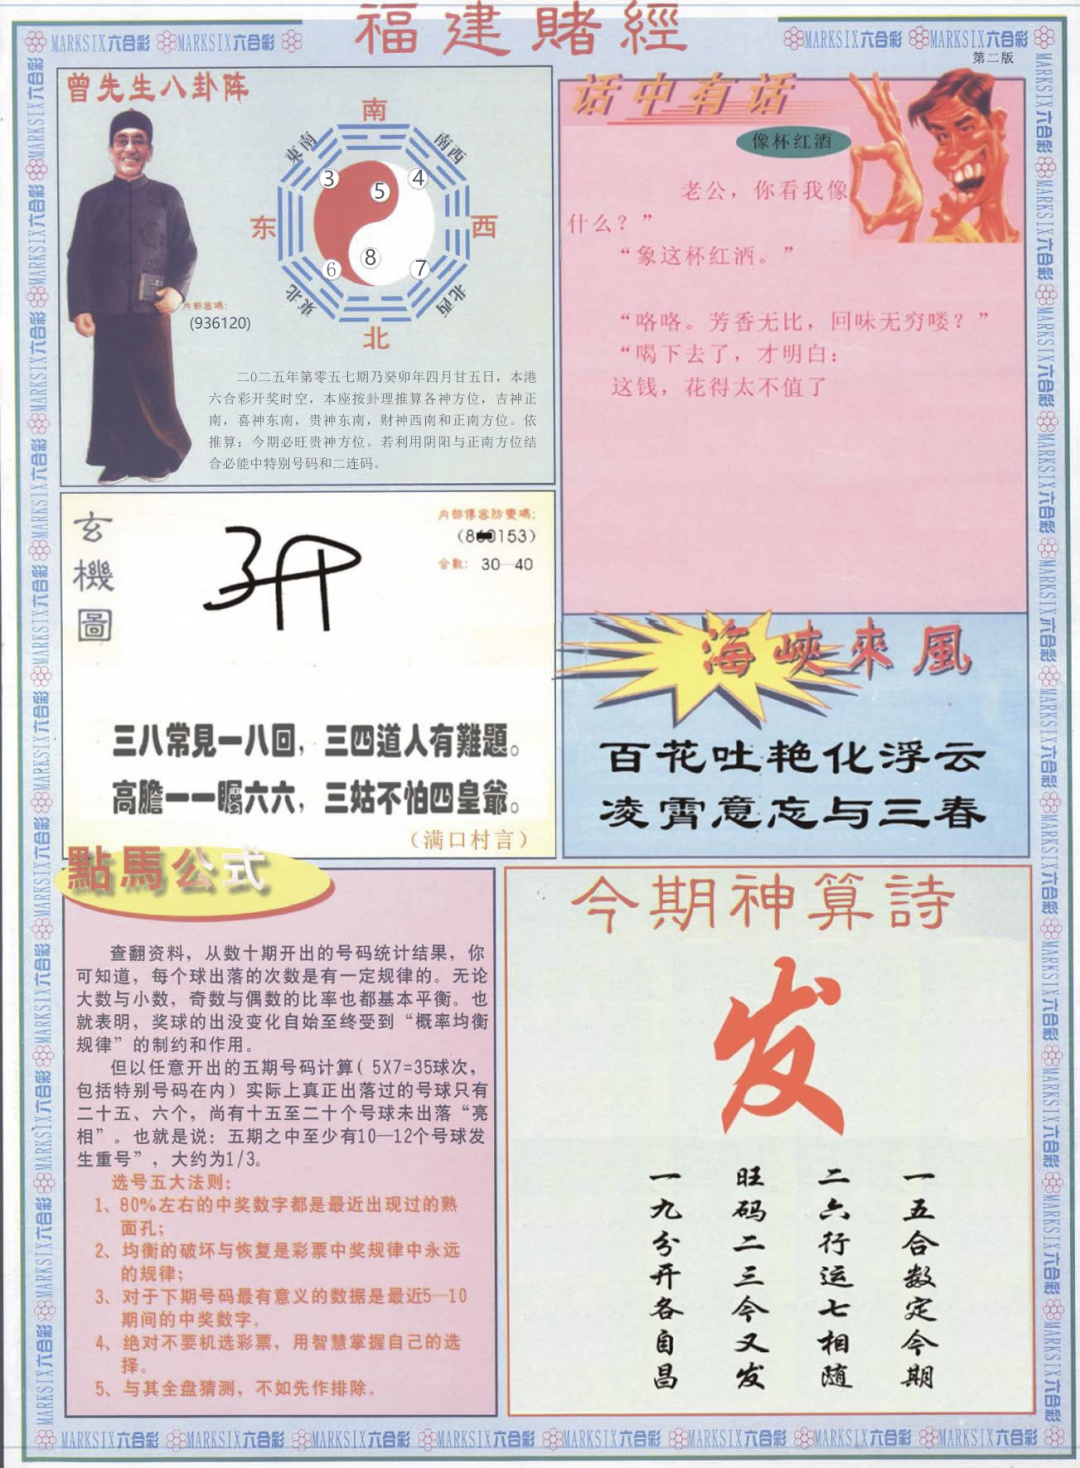 福建賭經
MARKSIX六合彩 MARKSIX六合彩
MARKSIX六合彩 MARKSIX六合彩
第二版
曾先生八卦阵
南
東南
南西
3
5
4
东
西
6
8
7
東北
北西
北
内部密碼：
(936120)
二0二五年第零五七期乃癸卯年四月廿五日，本港
六合彩开奖时空，本座按卦理推算各神方位，吉神正
南，喜神东南，贵神东南，财神西南和正南方位。依
推算：今期必旺贵神方位。若利用阴阳与正南方位结
合必能中特别号码和二连码。
话中有话
像杯红酒
老公，你看我像
什么？”
“象这杯红酒。”
“咯咯。芳香无比，回味无穷喽？”
“喝下去了，才明白：
这钱，花得太不值了
玄機圖
内部傳密防變碼：
0153)
合數： 30—40
三八常見一八回，三四道人有難題。
高膽一一矚六六，三姑不怕四皇爺。
（满口村言）
海峽來風
百花吐艳化浮云
凌霄意忘与三春
點馬公式
查翻资料，从数十期开出的号码统计结果，你
可知道，每个球出落的次数是有一定规律的。无论
大数与小数，奇数与偶数的比率也都基本平衡。也
就表明，奖球的出没变化自始至终受到“概率均衡
规律”的制约和作用。
但以任意开出的五期号码计算( 5X7=35球次，
包括特别号码在内）实际上真正出落过的号球只有
二十五、六个，尚有十五至二十个号球未出落“亮
相”。也就是说：五期之中至少有10—12个号球发
生重号”，大约为1/3。
选号五大法则：
1、80%左右的中奖数字都是最近出现过的熟
面孔；
2、均衡的破坏与恢复是彩票中奖规律中永远
的规律；
3、对于下期号码最有意义的数据是最近5—10
期间的中奖数字。
4、绝对不要机选彩票，用智慧掌握自己的选
择。
5、与其全盘猜测，不如先作排除。
今期神算詩
发
一五合数定今期
二六行运七相随
旺码二三今又发
一九分开各自昌
MARKSIX六合彩 MARKSIX六合彩 MARKSIX六合彩 MARKSIX六合彩 MARKSIX六合彩 MARKSIX六合彩 MARKSIX六合彩 MARKSIX六合彩